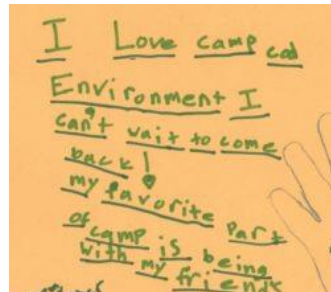 I Love camp cod
Environment I
can't wait to come
back!
my favorite part
of camp is being
with my friends